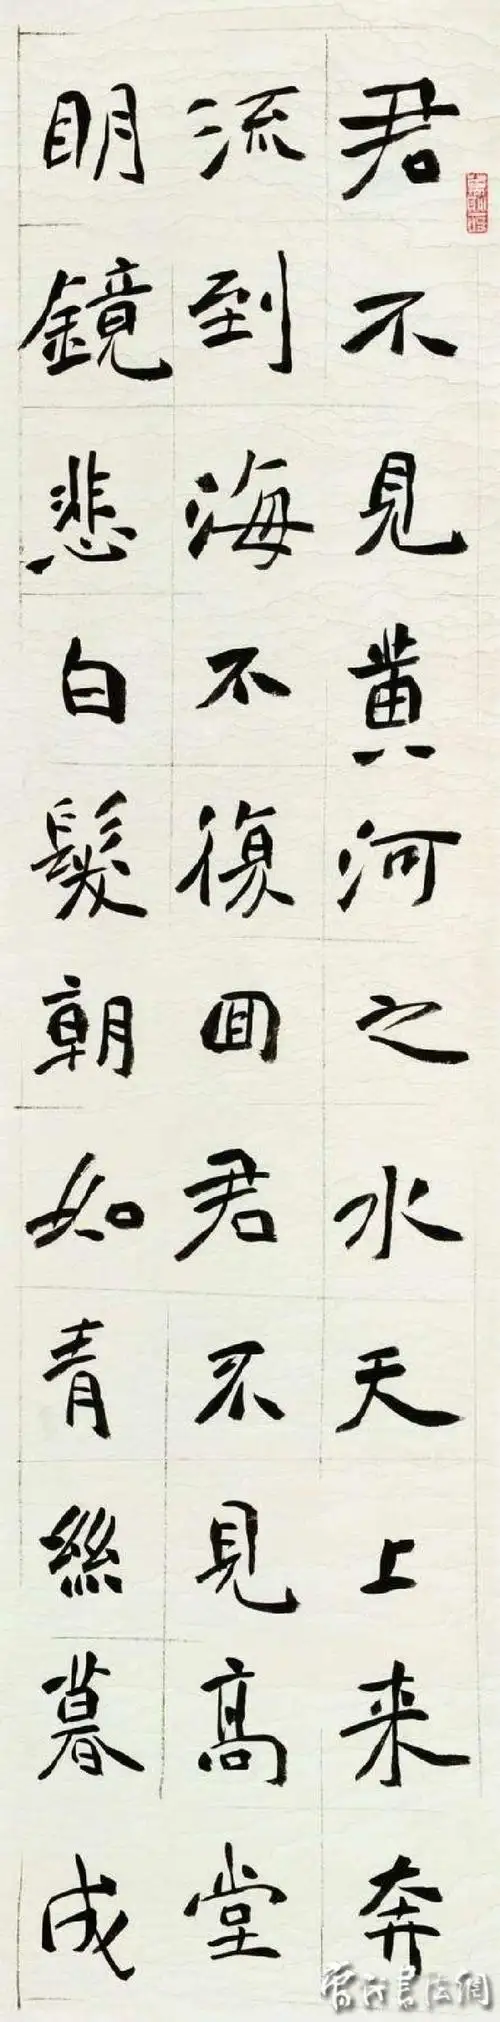 君不見黄河之水天上来奔
流到海不復回君不見高堂
明鏡悲白髮朝如青絲暮成
書法網